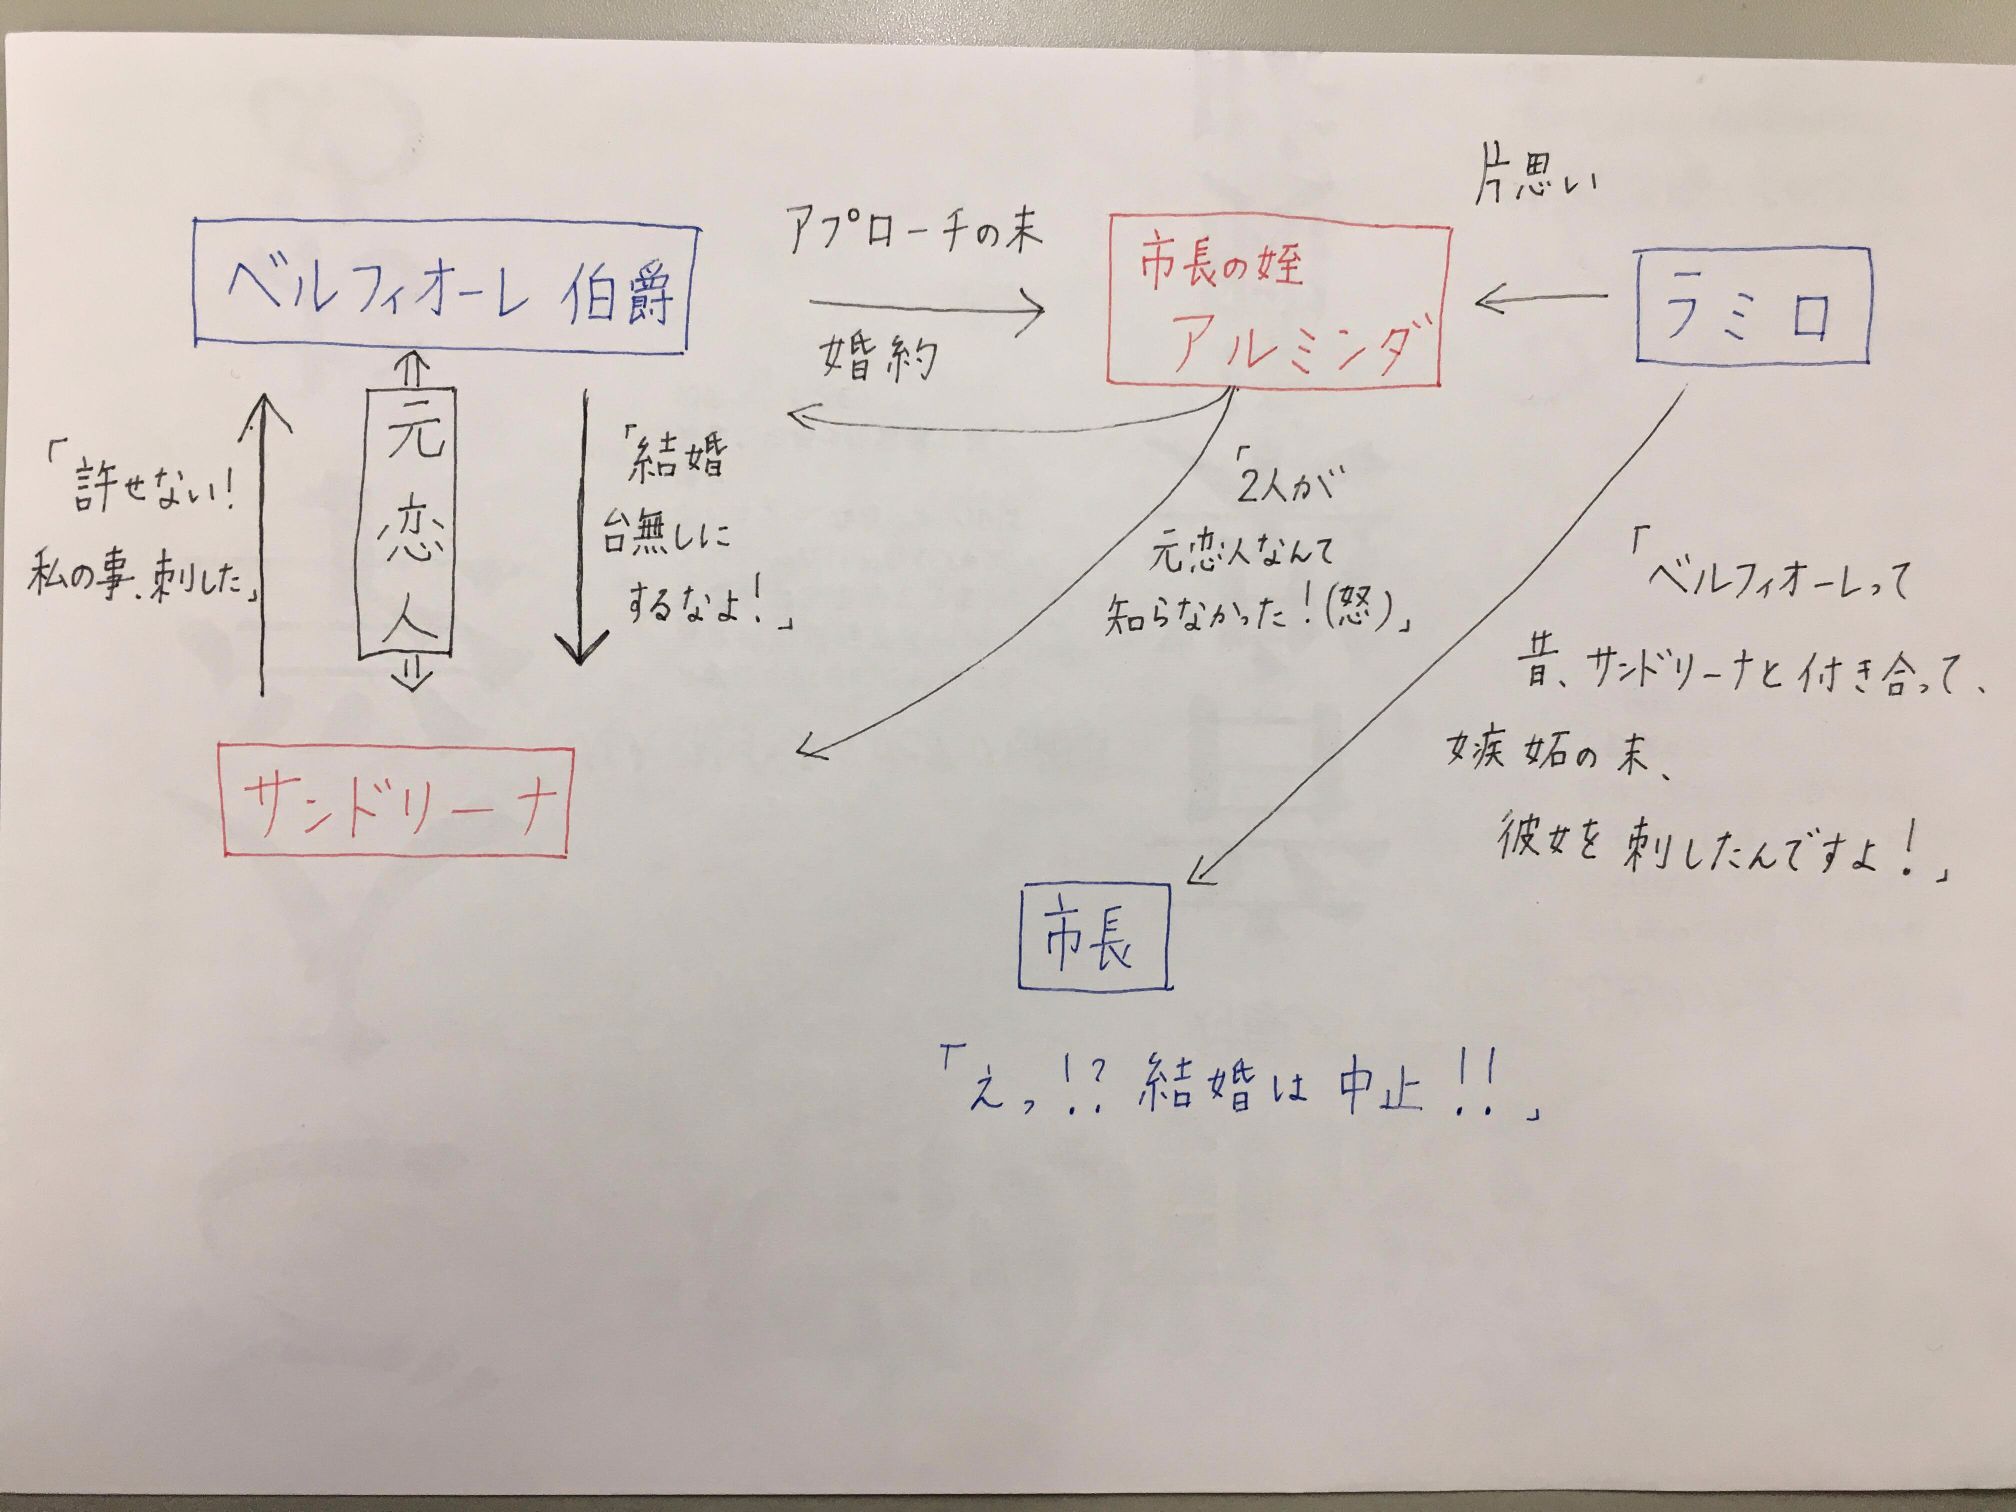 片思い
アプローチの末
ベルフィオーレ伯爵
市長の姪
アルミンダ
ラミロ
婚約
元恋人
「許せない!
私の事、刺した」
「結婚
台無しに
するなよ!」
「2人が
元恋人なんて
知らなかった!(怒)」
「ベルフィオーレって
昔、サンドリーナと付き合って、
嫉妬の末、
彼女を刺したんですよ!」
サンドリーナ
市長
「えっ!?結婚は中止!!」